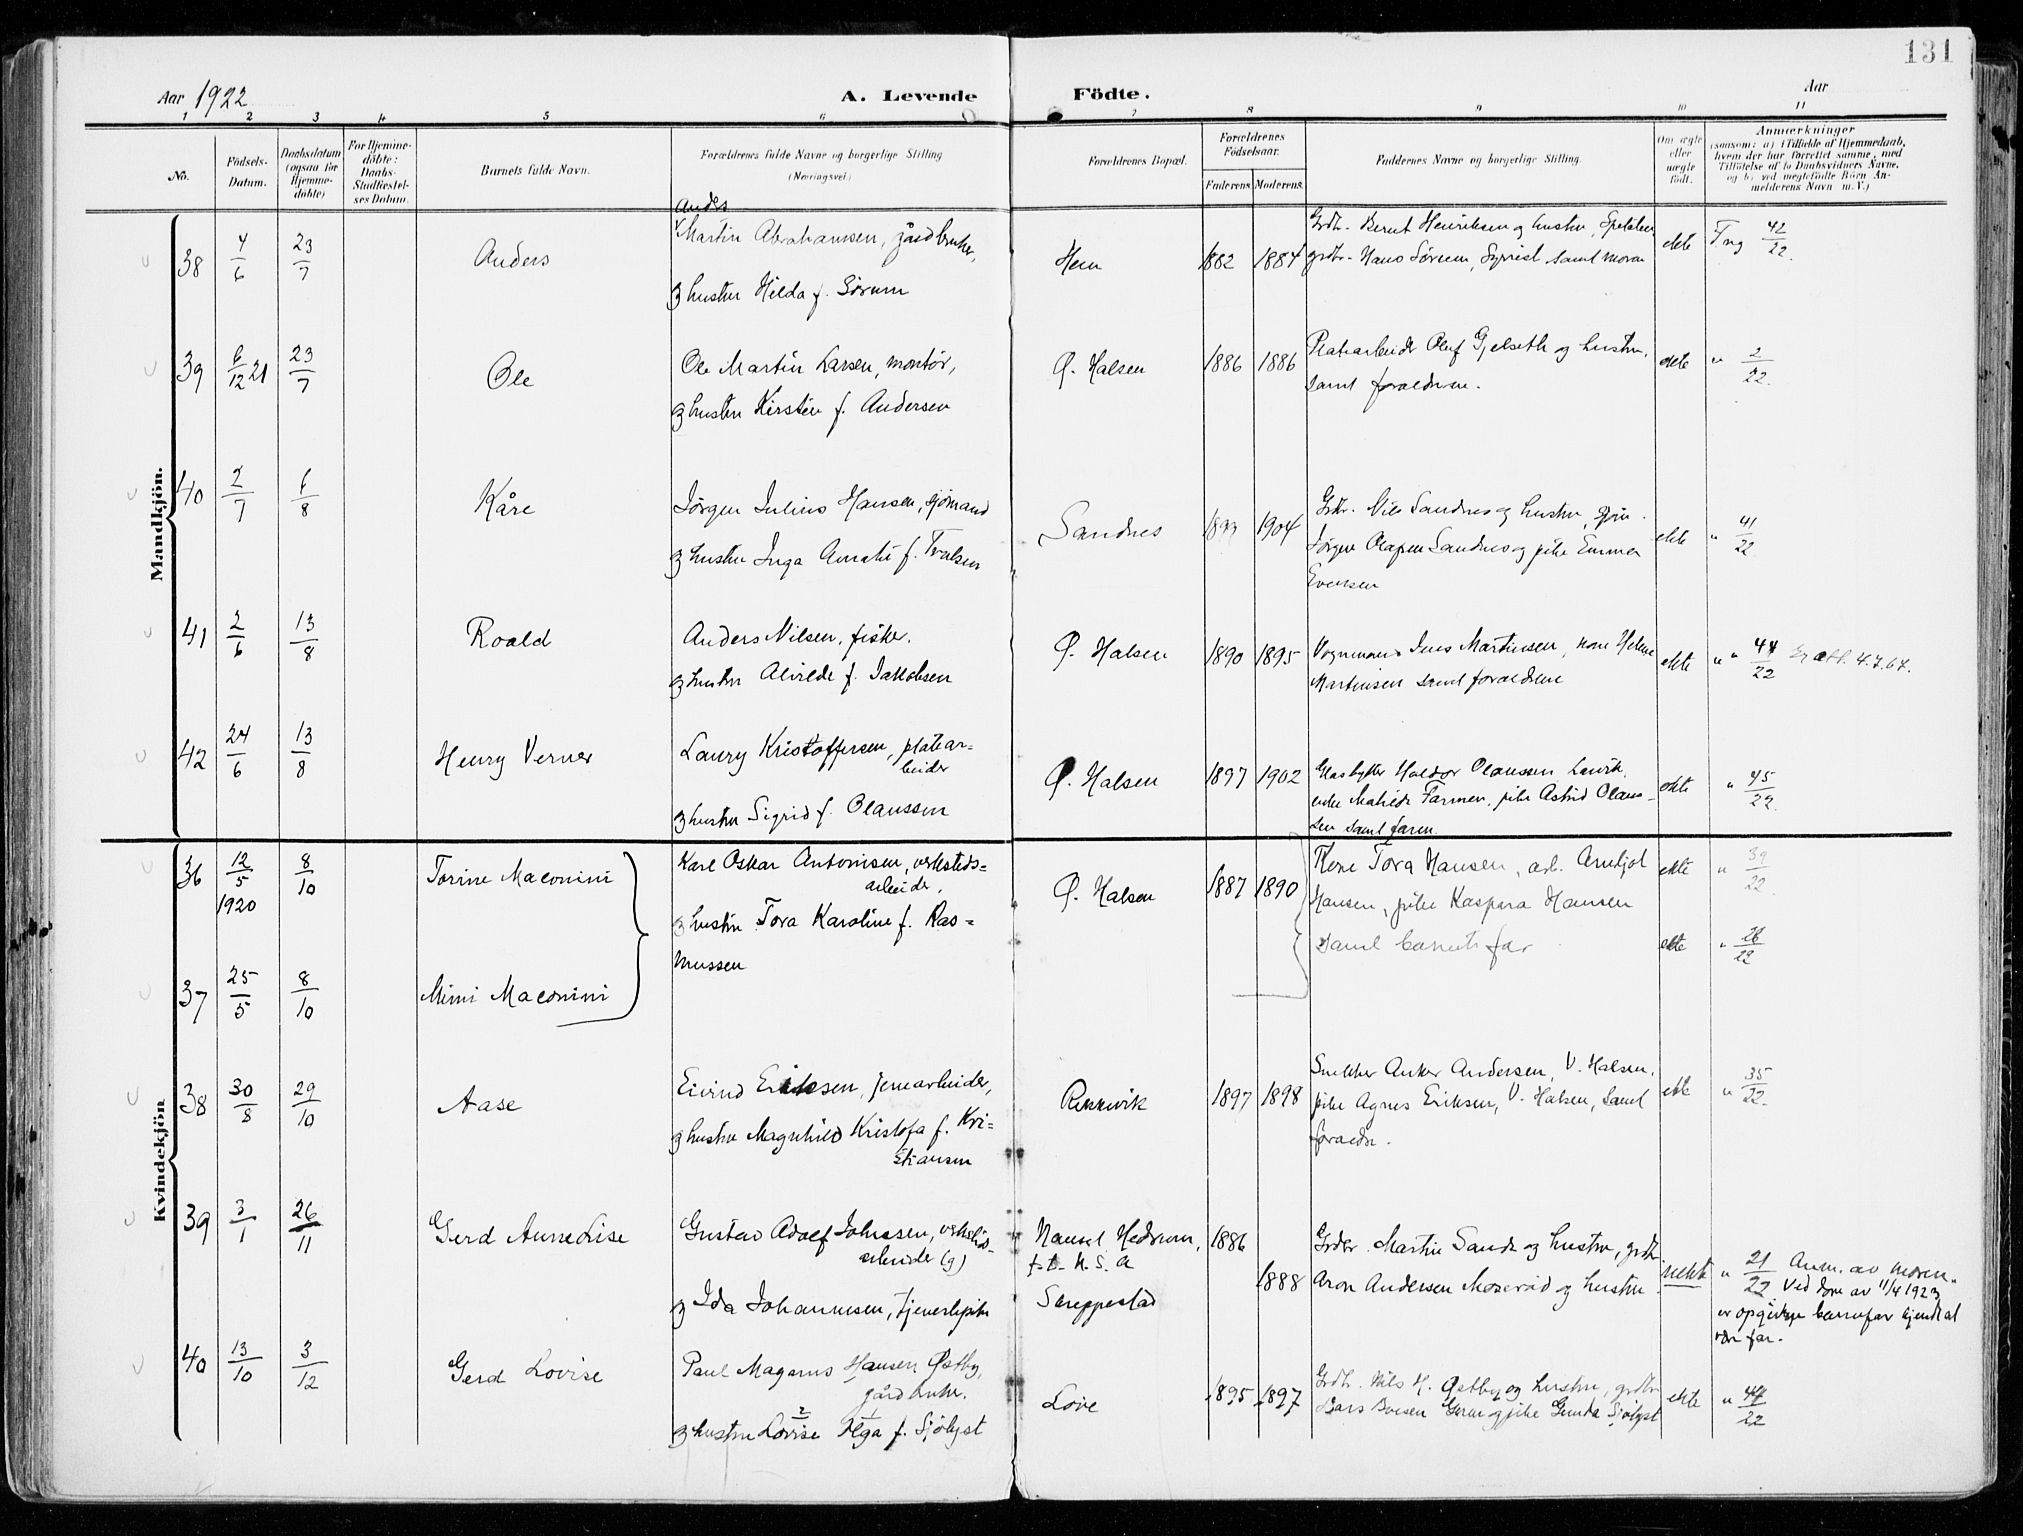 131
Aar 1922
A. Levende Födte.
Aar
1 2 3 4 5 6 7 8 9 10 11
No.
Födsels-Datum.
Daabsdatum (ogsaa for Hjemmedöbte)
For Hjemmedöbte: Daabs-Stadfæstelses Datum.
Barnets fulde Navn.
Forældrenes fulde Navne og borgerlige Stilling (Næringsvei)
Forældrenes Bopæl.
Forældrenes Födselsaar.
Faderens. Moderens.
Faddernes Navne og borgerlige Stilling.
Om ægte eller uægte födt.
Anmærkninger
(saasom: a) i Tilfælde af Hjemmedaab, hvem der har forrettet samme, med Tilföielse af to Daabsvidners Navne, og b) ved uægtefödte Börn Anmelderens Navn m. V.)
Mandkjön.
38 4/6 23/7 Anders
Anders
Martin Abrahamsen, gårdbruker,
og hustru Hilda f. Sörum
Hem 1882 1884
Grdbr. Bernt Henriksen og hustru,
grdbr. Hans Sörum, samt moren
ekte 42/22.
39 6/12 21 23/7 Ole
Ole Martin Larsen, montör,
og hustru Kirsten f. Andersen
Ø. Halsen 1886 1886
Platearbeider Oluf Gjelseth og hustru,
samt foreldrene.
ekte " 2/22.
40 2/7 6/8 Kåre
Jörgen Julius Hansen, sjömand
og hustru Inga f.
Sandnes 1904
Grdbr. Nils Sandnes og hustru,
Jörgen Olafsen Sandnes og pike Emma
Evensen
ekte " 41/22
41 2/6 13/8 Roald
Anders Nilsen, fisker.
og hustru Alvilde f. Jakobsen
Ø. Halsen 1890 1895
Vognmand Jens Martinsen, kone Helene
Martinsen samt foreldrene
ekte " " 44/22 4.7.67.
42 24/6 13/8 Henry Verner
Laury Kristoffersen, platear-
beider
og hustru Sigrid f. Olaussen
Ø. Halsen 1897 1902
Haldor Olaussen Larvik,
enke Farmen, pike Astrid Olaus-
sen samt faren
ekte " 45/22
Kvindekjön
36 12/5 1920 8/10 Torine Maconini
Karl Oskar Antonisen, verksteds-
arbeider,
og hustru Tora Karoline f. Ras-
mussen
Ø. Halsen 1887 1890
Tora Hansen, arb. Arnljot
Hansen, pike Kaspara Hansen
samt barnets far
ekte " 39/22.
ekte " 26/22
37 25/5 8/10 Mimi Maconini
38 30/8 29/10 Aase
Eivind Eriksen, jernarbeider,
og hustru Magnhild Kristofa f. Kri-
stiansen
Rekkevik 1897 1898
Snekker Anker Andersen, V. Halsen,
pike Agnes Eriksen, V. Halsen, samt
foreldr.
ekte " 35/22.
39 3/1 26/11 Gerd Anne Lise
Gustav Adolf Johnssen, verksteds-
arbeider (g)
og Ida Johannesen, tjenestepike
Nanset Hedrum,
f. t. N. S. A.
Skreppestad
1886
1888
Grdbr. Martin Sande og hustru, grdbr.
Aron Andersen Möseröd og hustru
uekte " 21/22 Anm. av moren.
Ved dom av 11/4 1923
er opgivne barnefar kjendt at
være far.
40 13/10 3/12 Gerd Lovise
Paul Magnus Hansen Østby,
gårdbruker.
og hustru Lovise Olga f. Sjölyst
Löve 1895 1897
Grdbr. Nils H. Østby og hustru, grdbr.
Lars og pike Gunda Sjölyst
ekte " 44/22